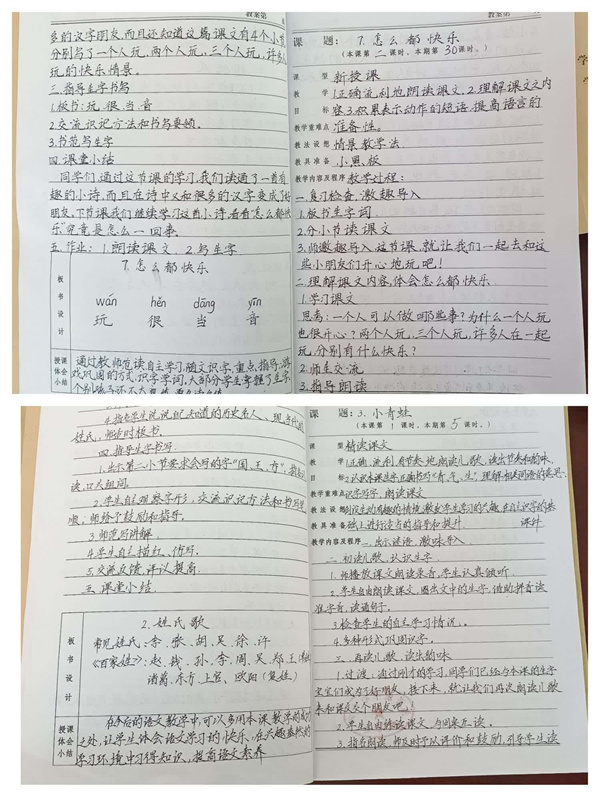 教案第
多的汉字朋友,而且还知道这篇课文有4个小节
分别写了一个人玩,两个人玩,三个人玩,许多人
玩的快乐情景。
三.指导生字书写
1.板书:玩、很、当、音
2.交流识记方法和书写要领。
3.书范写生字
四.课堂小结
同学们,通过这节课的学习,我们读通了一首有
趣的小诗,而且在诗中又和很多的汉字变成了好
朋友,下节课我们继续学习这首小诗,看看"怎么都快
乐"究竟是怎么一回事。
五.作业:1.朗读课文.2.写生字
7.怎么都快乐
板书设计
wán hěn dāng yīn
玩 很 当 音
授课体会小结
通过教师范读,自主学习,随文识字,重点指导,游
戏巩固的方式,识字学词,大部分学生掌握了生字,
教案第
课 题:7.怎么都快乐
(本课第二课时。本期第30课时。)
课 型 新授课
教学目标 1.正确,流利地朗读课文.2.理解课文内
容.3.积累表示动作的短语,提高语言的
教学重难点 准备性。
教法设想 情景教学法
教具准备 小黑板
教学内容及程序 教学过程:
一.复习检查,激趣导入
1.板书生字词
2.分小节读课文
3.师激趣导入:这节课,就让我们一起去和这
些小朋友们开心地玩吧!
二.理解课文内容,体会怎么都快乐
1.学习课文
思考:一个人可以做哪些事?为什么一个人玩
也很开心?两个人玩,三个人玩,许多人在一起
玩,分别有什么快乐?
2.师生交流
3.指导朗读
4.指名学生说说已知道的历史名人、现
姓氏,师适时板书。
四.指导生字书写.
1.出示第一小节要求会写的字"国、王、方",
读,口头组词.
2.学生自主观察字形,交流识记方法和书写
师给予鼓励和指导。
3.师范写讲解.
4.学生自主描红、仿写.
5.交流反馈,评议提高.
五.课堂小结.
2.姓氏歌
板书设计
常见姓氏:李、张、胡、吴、徐、许
《百家姓》:赵、钱、孙、李、周、吴、郑、王
诸葛、东方、上官、欧阳(复姓)
授课体会小结
在今后的语文教学中,可以多用本课教学的
之处,让学生体会语文学习的快乐,在兴趣盎然的
学习环境中习得知识,提高语文素养
课 题:3.小青蛙
(本课第1课时。本期第5课时。)
课 型 精读课文
教学目标 1.正确、流利、有节奏地朗读儿歌,读出节奏和韵味.
2.认识本课生字,正确书写"青、气、生",理解相关词语的意思.
教学重难点 识字写字,朗读课文
教法设想 创设生动有趣的情境,激发学生学习的兴趣,在自主识字的基
教具准备 础上进行适当的指导和提升. 课件
教学内容及程序 一.出示谜语,激味导入
二.初读儿歌,认识生字
1.师播放课文朗读录音,学生认真倾听
2.学生自由朗读课文,圈出文中的生字,借助拼音读
准字音,读通句子.
3.检查学生的自主学习情况。
4.多种形式巩固识字。
三.再读儿歌,读出韵味
1.过渡:通过刚才的学习,同学们已经与本课的生字
宝宝们成为了好朋友,接下来,就让我们再次朗读儿歌
来和课文交个朋友吧!
2.学生自由练读课文,与同桌互读。
3.指名朗读,师及时予以评价和鼓励,引导学生读